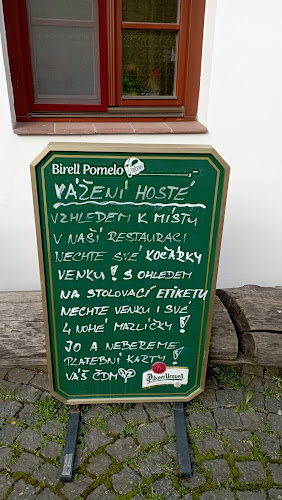 Birell Pomelo
VÁŽENÍ HOSTÉ
VZHLEDEM K MÍSTU
V NAŠÍ RESTAURACI
NECHTE SVÉ KOČÁRKY
VENKU! S OHLEDEM
NA STOLOVACÍ ETIKETU
NECHTE VENKU I SVÉ
4 NOHÉ MAZLÍČKY!
JO A NEBEREME
PLATEBNÍ KARTY!
VÁŠ ČDM
Pilsner Urquell